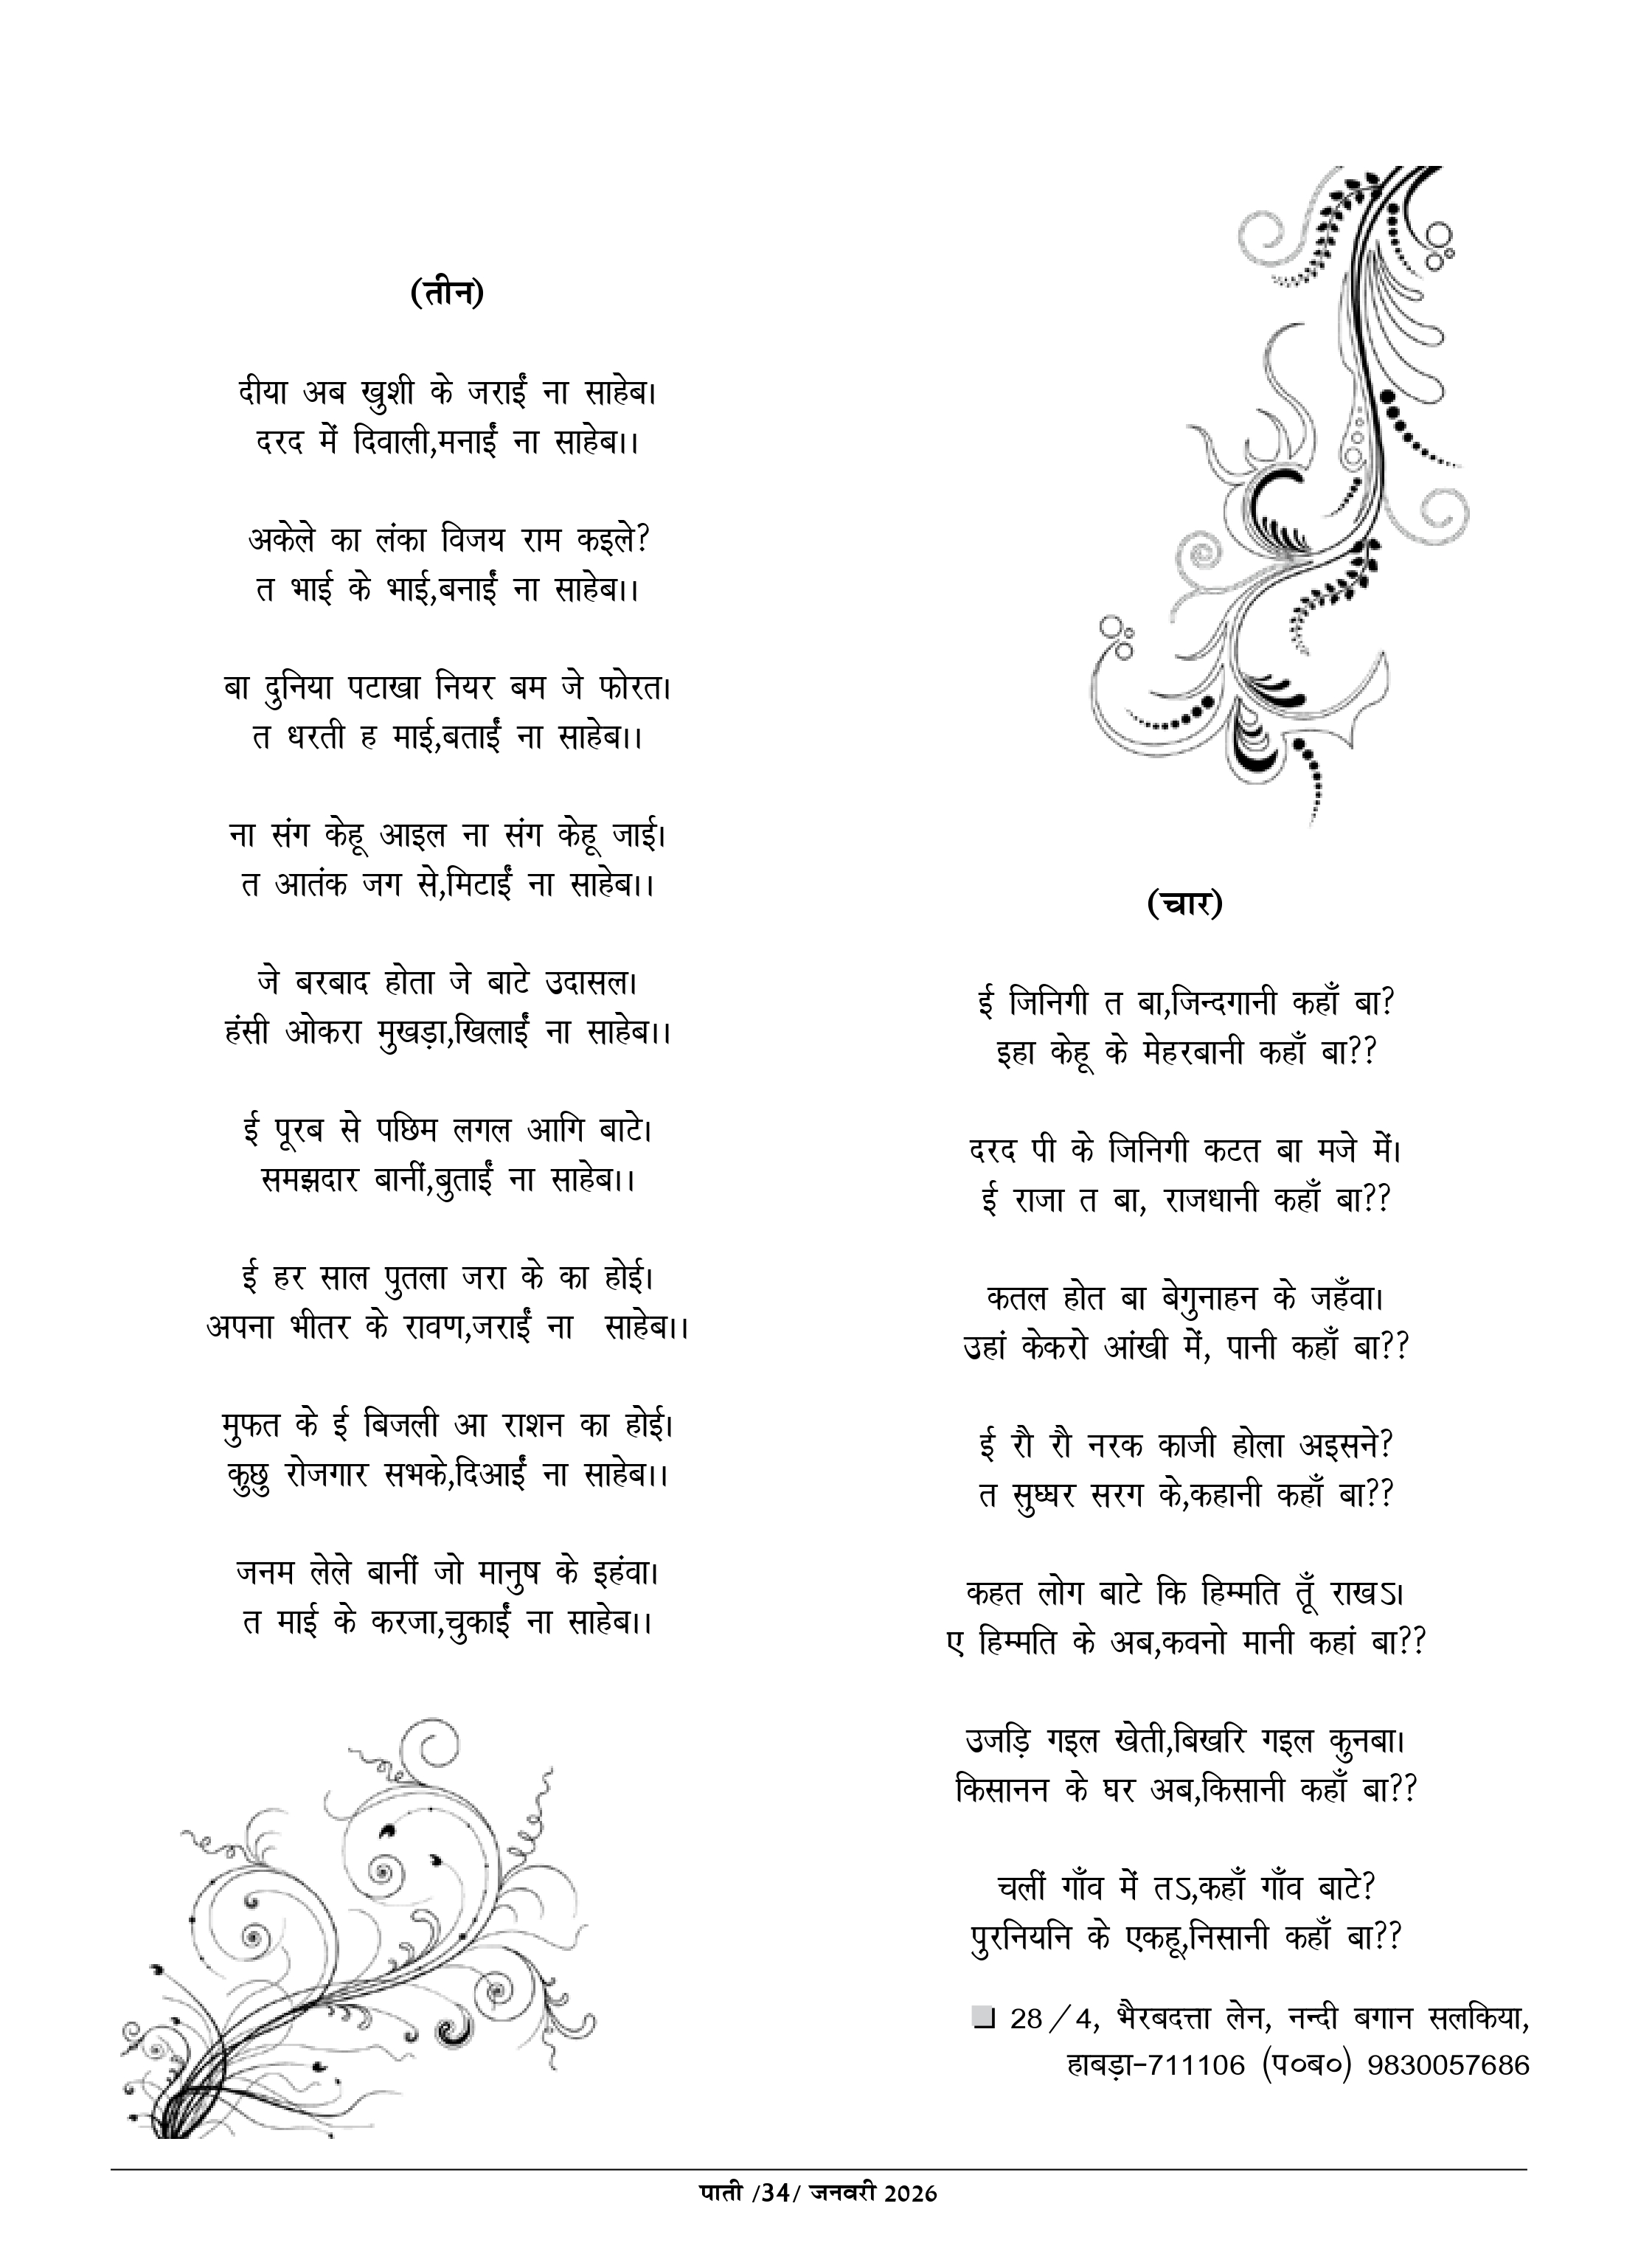 (तीन)
दीया अब खुशी के जराईं ना साहेब।
दरद में दिवाली,मनाईं ना साहेब।।
अकेले का लंका विजय राम कइले?
त भाई के भाई,बनाईं ना साहेब।।
बा दुनिया पटाखा नियर बम जे फोरत।
त धरती ह माई,बताईं ना साहेब।।
ना संग केहू आइल ना संग केहू जाई।
त आतंक जग से,मिटाईं ना साहेब।।
जे बरबाद होता जे बाटे उदासल।
हंसी ओकरा मुखड़ा,खिलाईं ना साहेब।।
ई पूरब से पछिम लगल आगि बाटे।
समझदार बानीं,बुताईं ना साहेब।।
ई हर साल पुतला जरा के का होई।
अपना भीतर के रावण,जराईं ना साहेब।।
मुफत के ई बिजली आ राशन का होई।
कुछु रोजगार सभके,दिआईं ना साहेब।।
जनम लेले बानीं जो मानुष के इहंवा।
त माई के करजा,चुकाईं ना साहेब।।
(चार)
ई जिनिगी त बा,जिन्दगानी कहाँ बा?
इहा केहू के मेहरबानी कहाँ बा??
दरद पी के जिनिगी कटत बा मजे में।
ई राजा त बा, राजधानी कहाँ बा??
कतल होत बा बेगुनाहन के जहँवा।
उहां केकरो आंखी में, पानी कहाँ बा??
ई रौ रौ नरक काजी होला अइसने?
त सुघ्घर सरग के,कहानी कहाँ बा??
कहत लोग बाटे कि हिम्मति तूँ राखऽ।
ए हिम्मति के अब,कवनो मानी कहां बा??
उजड़ि गइल खेती,बिखरि गइल कुनबा।
किसानन के घर अब,किसानी कहाँ बा??
चलीं गाँव में तऽ,कहाँ गाँव बाटे?
पुरनियनि के एकहू,निसानी कहाँ बा??
❑ 28/4, भैरबदत्ता लेन, नन्दी बगान सलकिया,
हाबड़ा-711106 (प०ब०) 9830057686
पाती /34/ जनवरी 2026